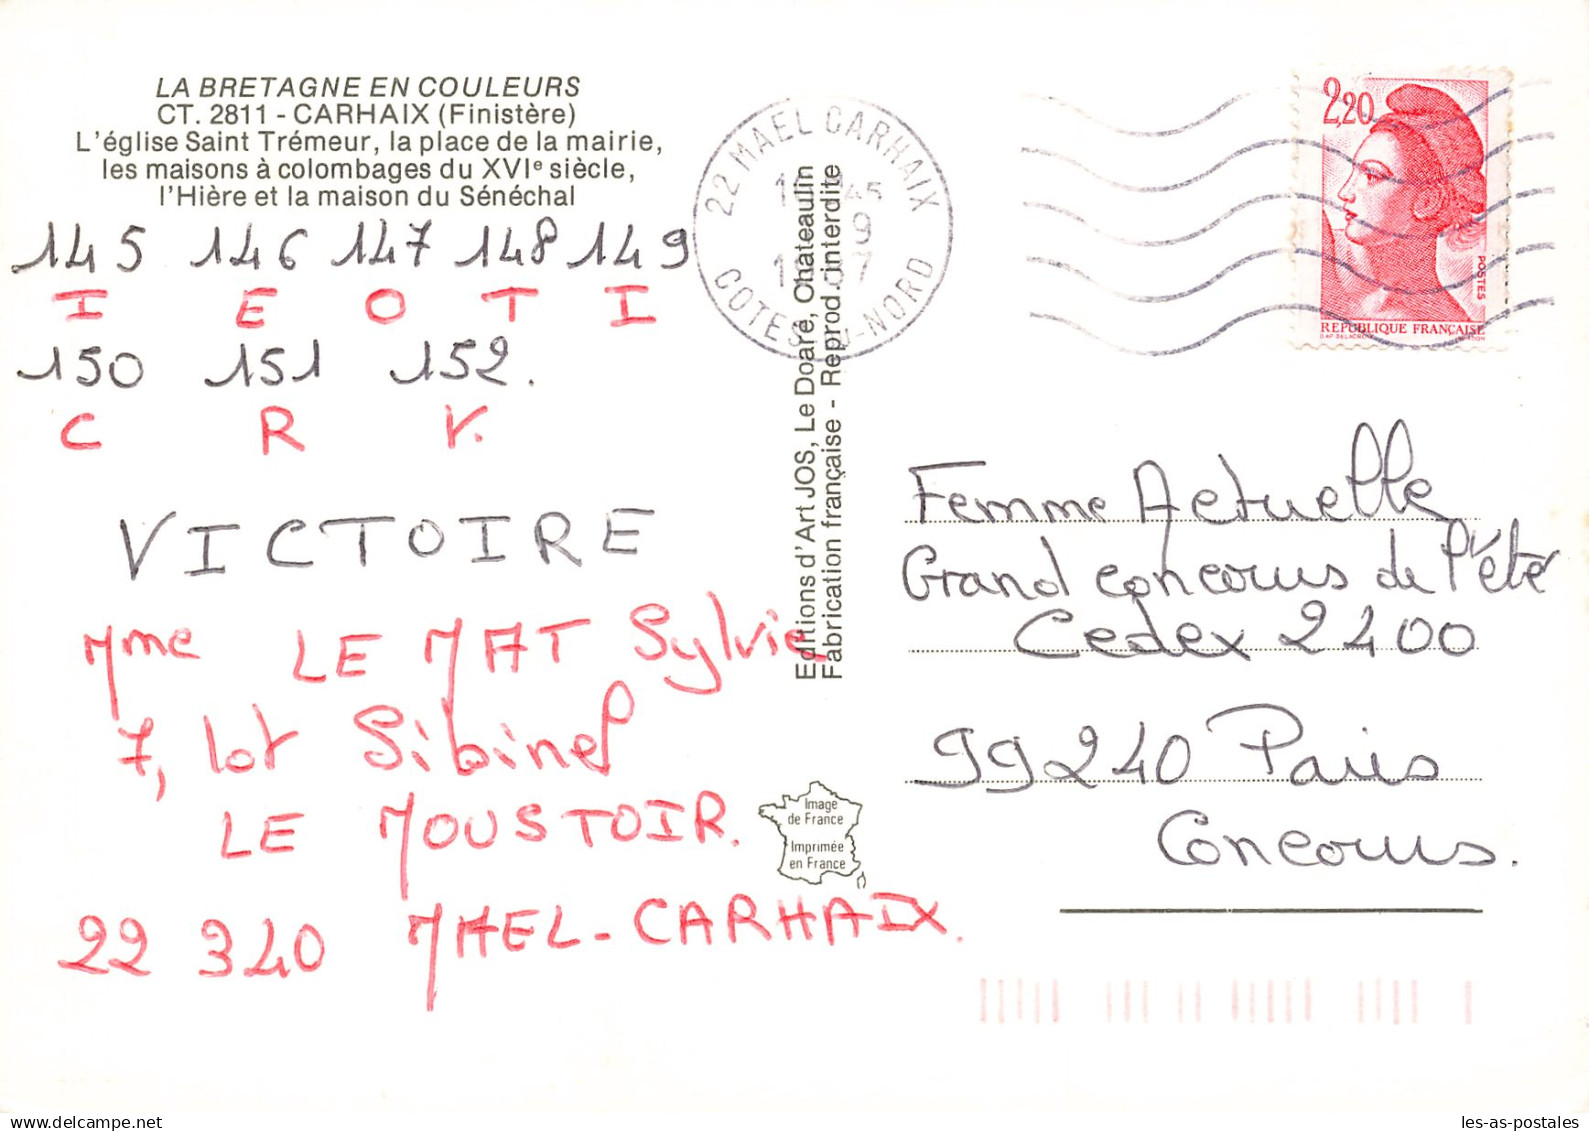 LA BRETAGNE EN COULEURS
CT. 2811 - CARHAIX (Finistère)
L'église Saint Trémeur, la place de la mairie,
les maisons à colombages du XVIe siècle,
l'Hière et la maison du Sénéchal
145 146 147 148 149
I E O T I
150 151 152.
C R V.
VICTOIRE
Mme LE MAT Sylvie
7, lot Sibinel
LE MOUSTOIR.
22 340 MAEL-CARHAIX.
Editions d'Art JOS, Le Doaré, Chateaulin
Fabrication française - Reprod. interdite
Image
de France
Imprimée
en France
22 MAEL CARHAIX
45
9
COTES NORD
2,20
POSTES
REPUBLIQUE FRANÇAISE
Femme Actuelle
Grand concours de l'été
Cedex 2400
99240 Paris
Concours.
les-as-postales